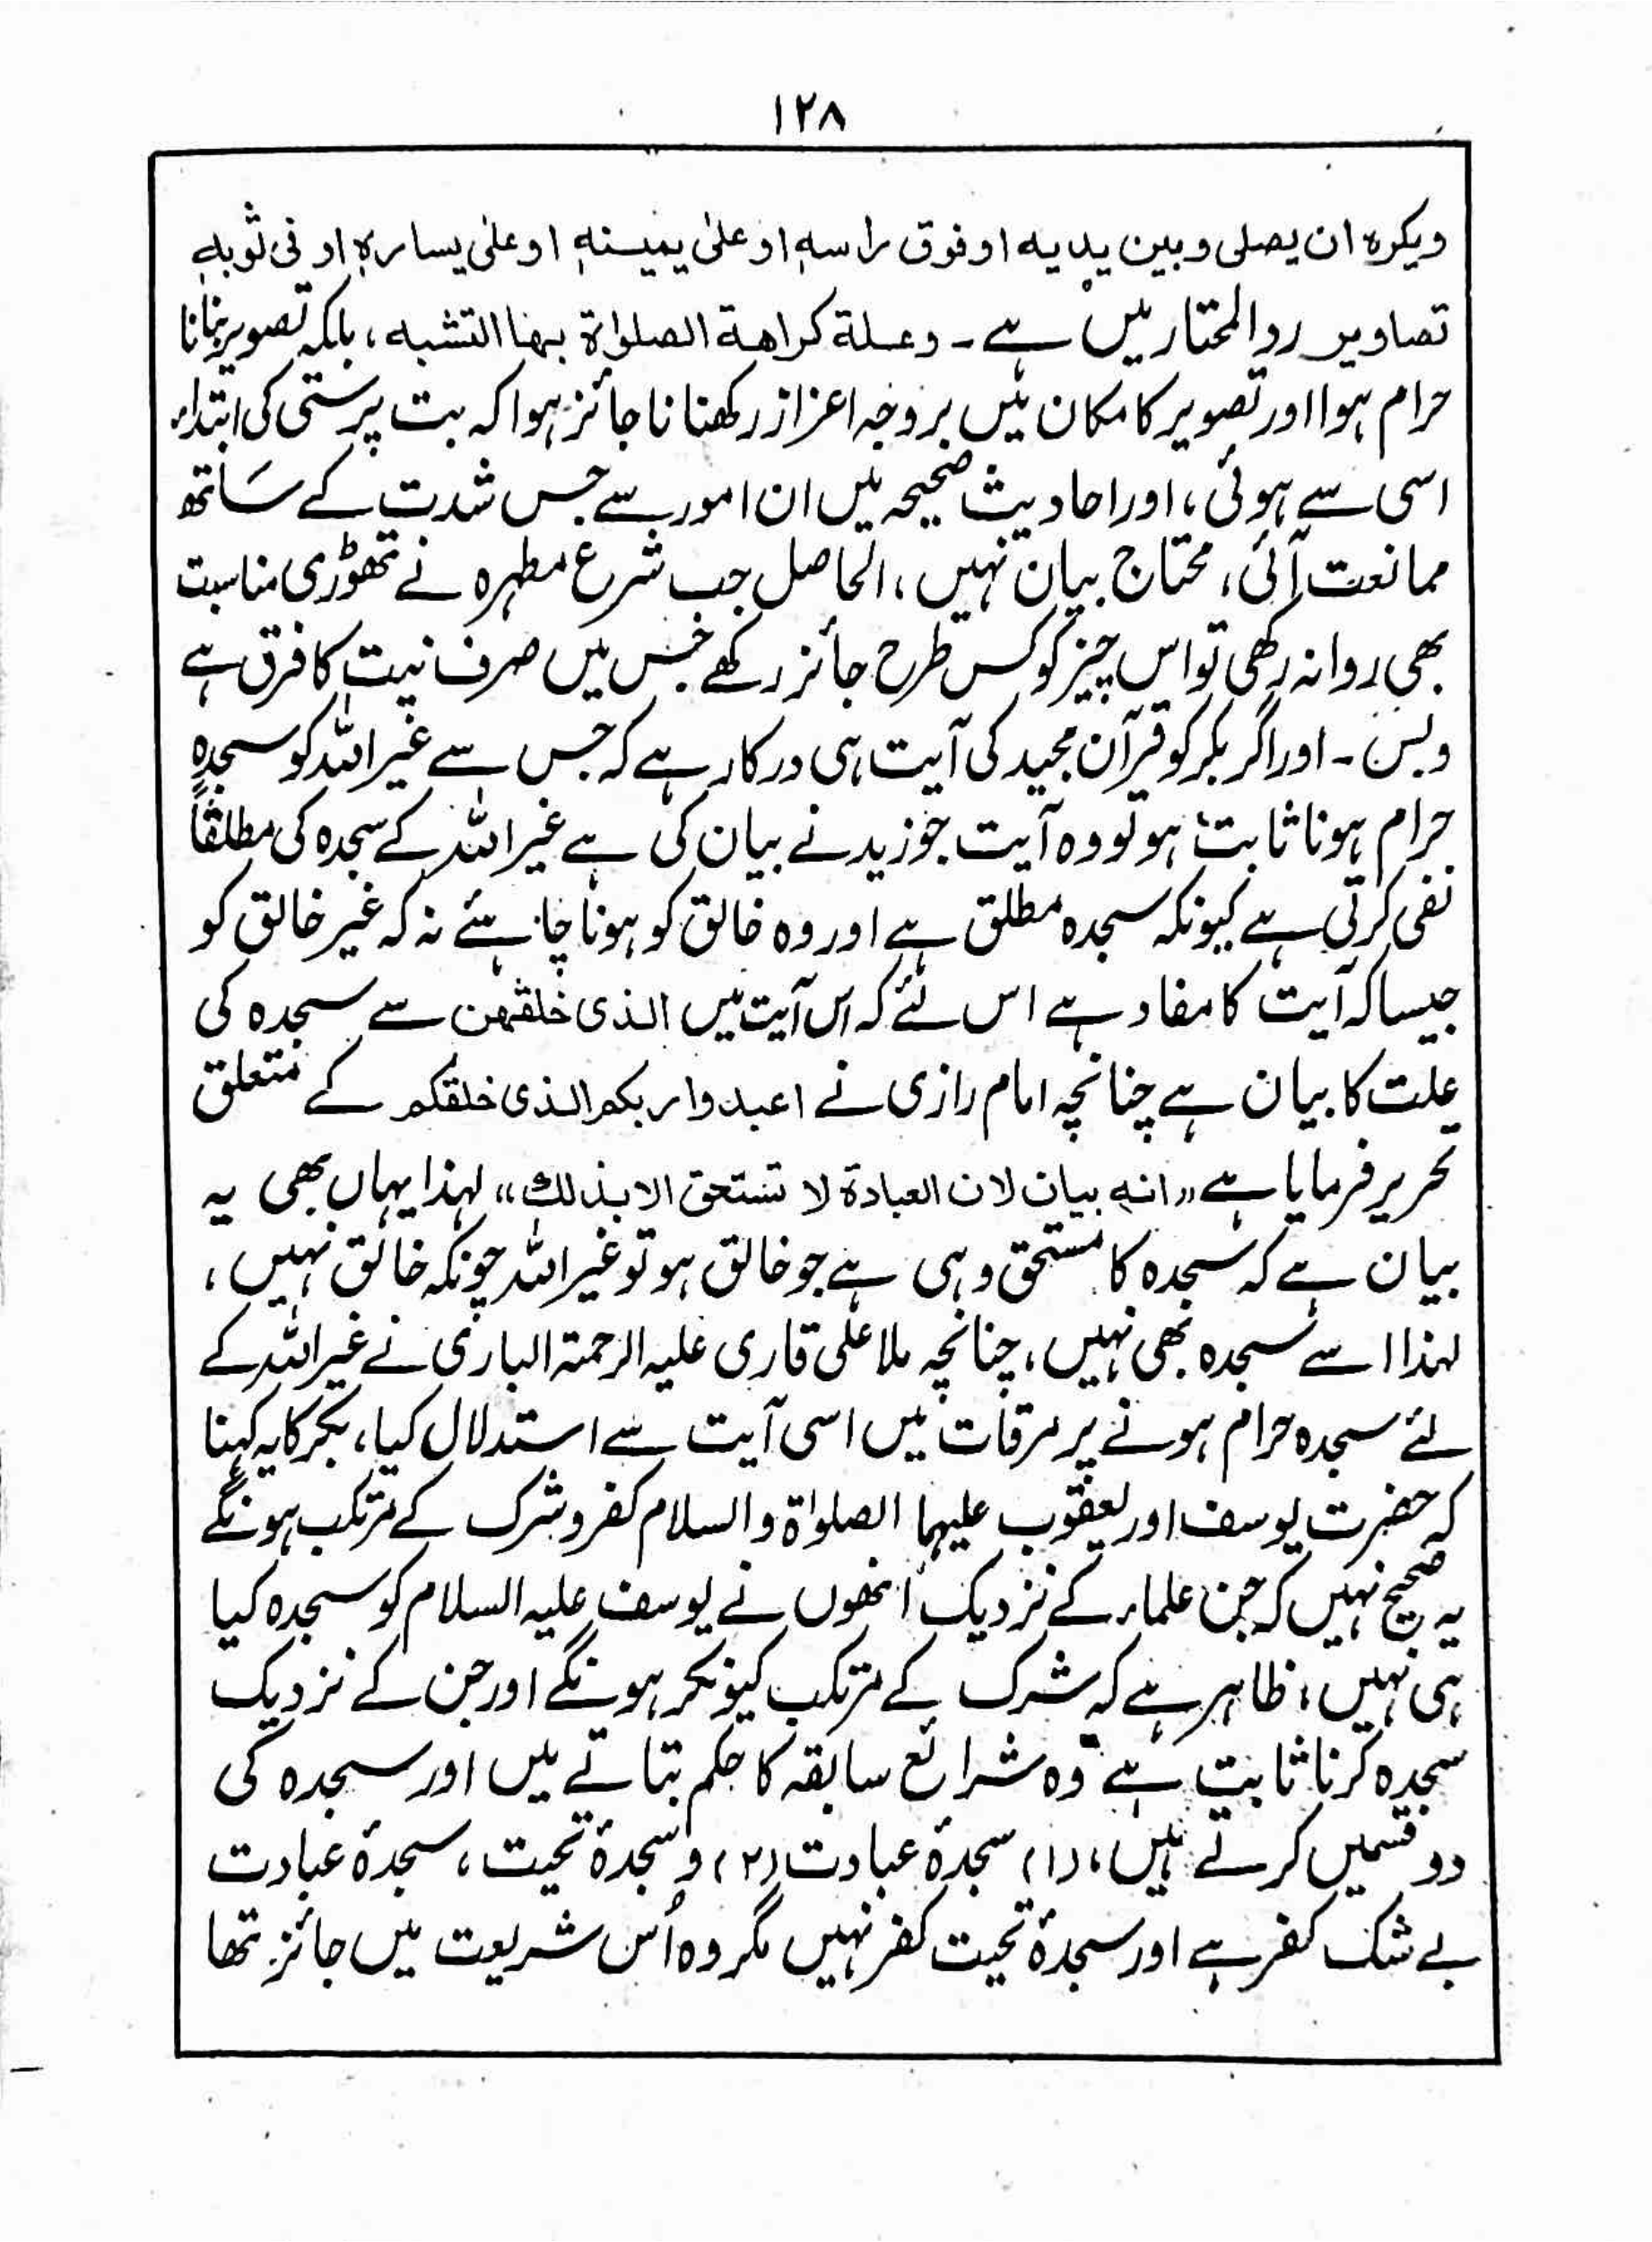 ۱۲۸
ویکرہ ان یصلی وبین یدیہ اوفوق راسہٖ اوعلیٰ یمینہٖ اوعلیٰ یسارہٖ او فی ثوبہٖ
تصاویر ردالمحتار میں ہے ـ وعلۃ کراھۃ الصلوٰۃ بہا التشبہ، بلکہ تصویر بنانا
حرام ہوا اور تصویر کا مکان میں بروجہ اعزاز رکھنا ناجائز ہوا کہ بت پرستی کی ابتداء
اسی سے ہوئی، اور احادیث صحیحہ میں ان امور سے جس شدت کے ساتھ
ممانعت آئی، محتاج بیان نہیں، الحاصل جب شرع مطہرہ نے تھوڑی مناسبت
بھی روا نہ رکھی تو اس چیز کو کس طرح جائز رکھے جس میں صرف نیت کا فرق ہے
وبس ـ اور اگر بکر کو قرآن مجید کی آیت ہی درکار ہے کہ جس سے غیر اللہ کو سجدہ
حرام ہونا ثابت ہو تو وہ آیت جو زید نے بیان کی ہے غیر اللہ کے سجدہ کی مطلقاً
نفی کرتی ہے کیونکہ سجدہ مطلق ہے اور وہ خالق کو ہونا چاہئے نہ کہ غیر خالق کو
جیسا کہ آیت کا مفاد ہے اس لئے کہ اس آیت میں الذی خلقھن سے سجدہ کی
علت کا بیان ہے چنانچہ امام رازی نے اعبدوا ربکم الذی خلقکم کے متعلق
تحریر فرمایا ہے "انہ بیان لان العبادۃ لا تستحق الا بذلك" لہذا یہاں بھی یہ
بیان ہے کہ سجدہ کا مستحق وہی ہے جو خالق ہو تو غیر اللہ چونکہ خالق نہیں،
لہذا اسے سجدہ بھی نہیں، چنانچہ ملا علی قاری علیہ الرحمۃ الباری نے غیر اللہ کے
لئے سجدہ حرام ہونے پر مرقات میں اسی آیت سے استدلال کیا، بکر کا یہ کہنا
کہ حضرت یوسف اور یعقوب علیہما الصلوٰۃ والسلام کفر وشرک کے مرتکب ہونگے
یہ صحیح نہیں کہ جن علماء کے نزدیک اُنھوں نے یوسف علیہ السلام کو سجدہ کیا
ہی نہیں، ظاہر ہے کہ شرک کے مرتکب کیونکر ہونگے اور جن کے نزدیک
سجدہ کرنا ثابت ہے وہ شرائع سابقہ کا حکم بتاتے ہیں اور سجدہ کی
دو قسمیں کرتے ہیں، (۱) سجدۂ عبادت (۲) و سجدۂ تحیت، سجدۂ عبادت
بے شک کفر ہے اور سجدۂ تحیت کفر نہیں مگر وہ اُس شریعت میں جائز تھا